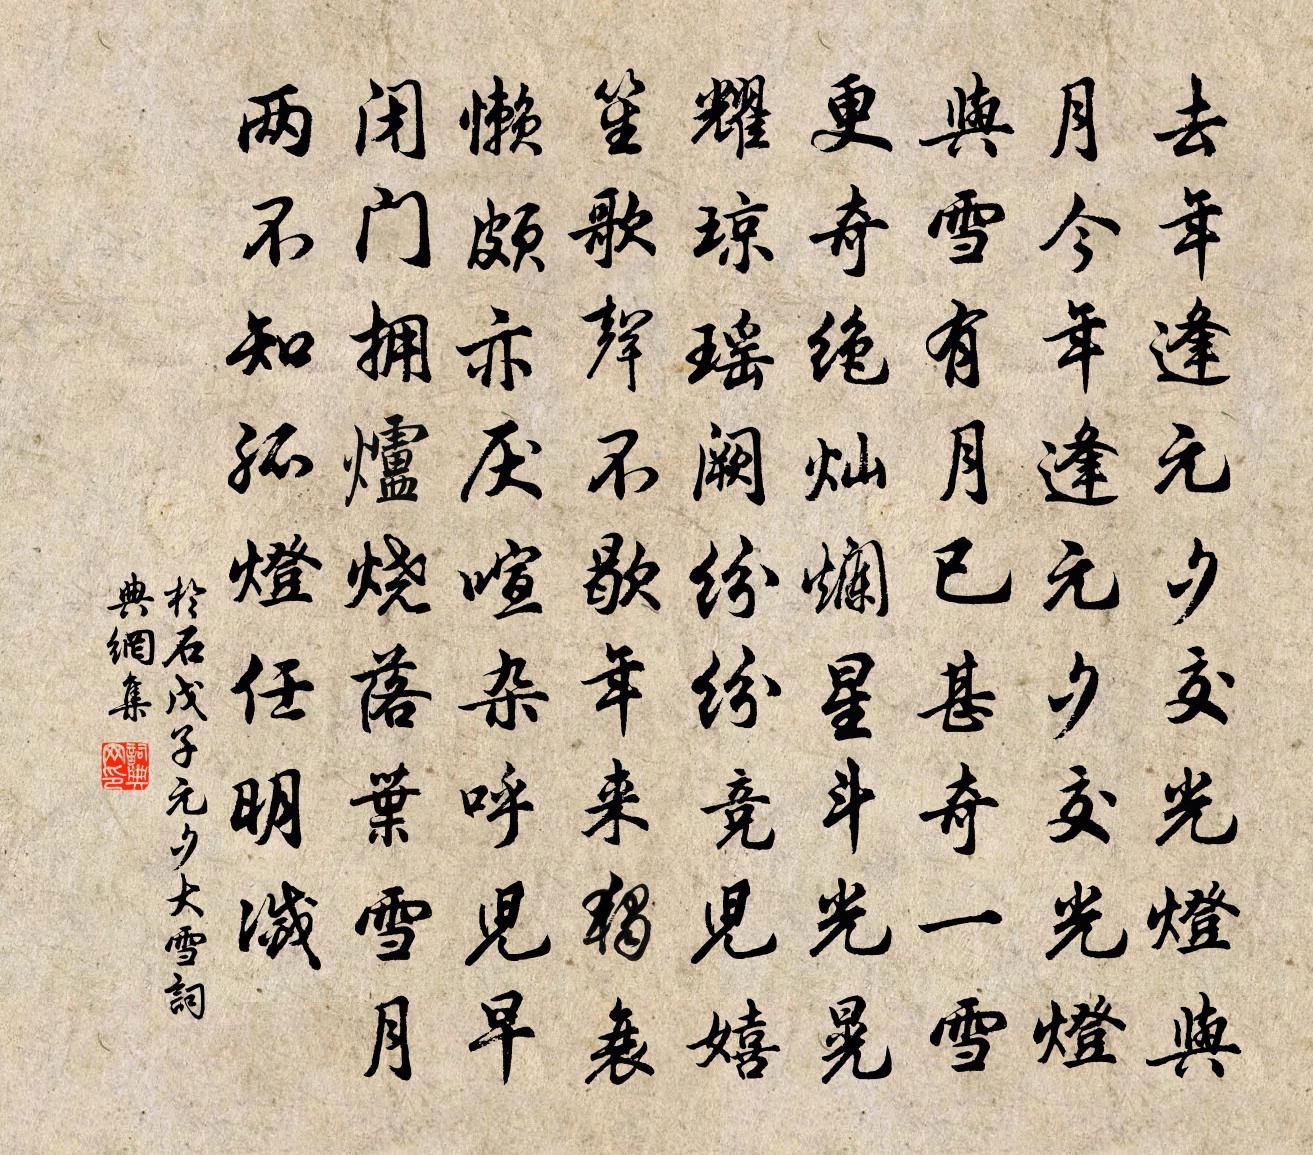 去年逢元夕交光燈與
月今年逢元夕交光燈
與雪有月已甚奇一雪
更奇绝灿爛星斗光晃
耀琼瑶阙纷纷竞兒嬉
笙歌聲不歇年来獨衰
懒颇亦厌喧杂呼兒早
闭门拥爐烧落葉雪月
两不知孤燈任明滅
於石戊子元夕大雪詞
典網集
詞典
网印